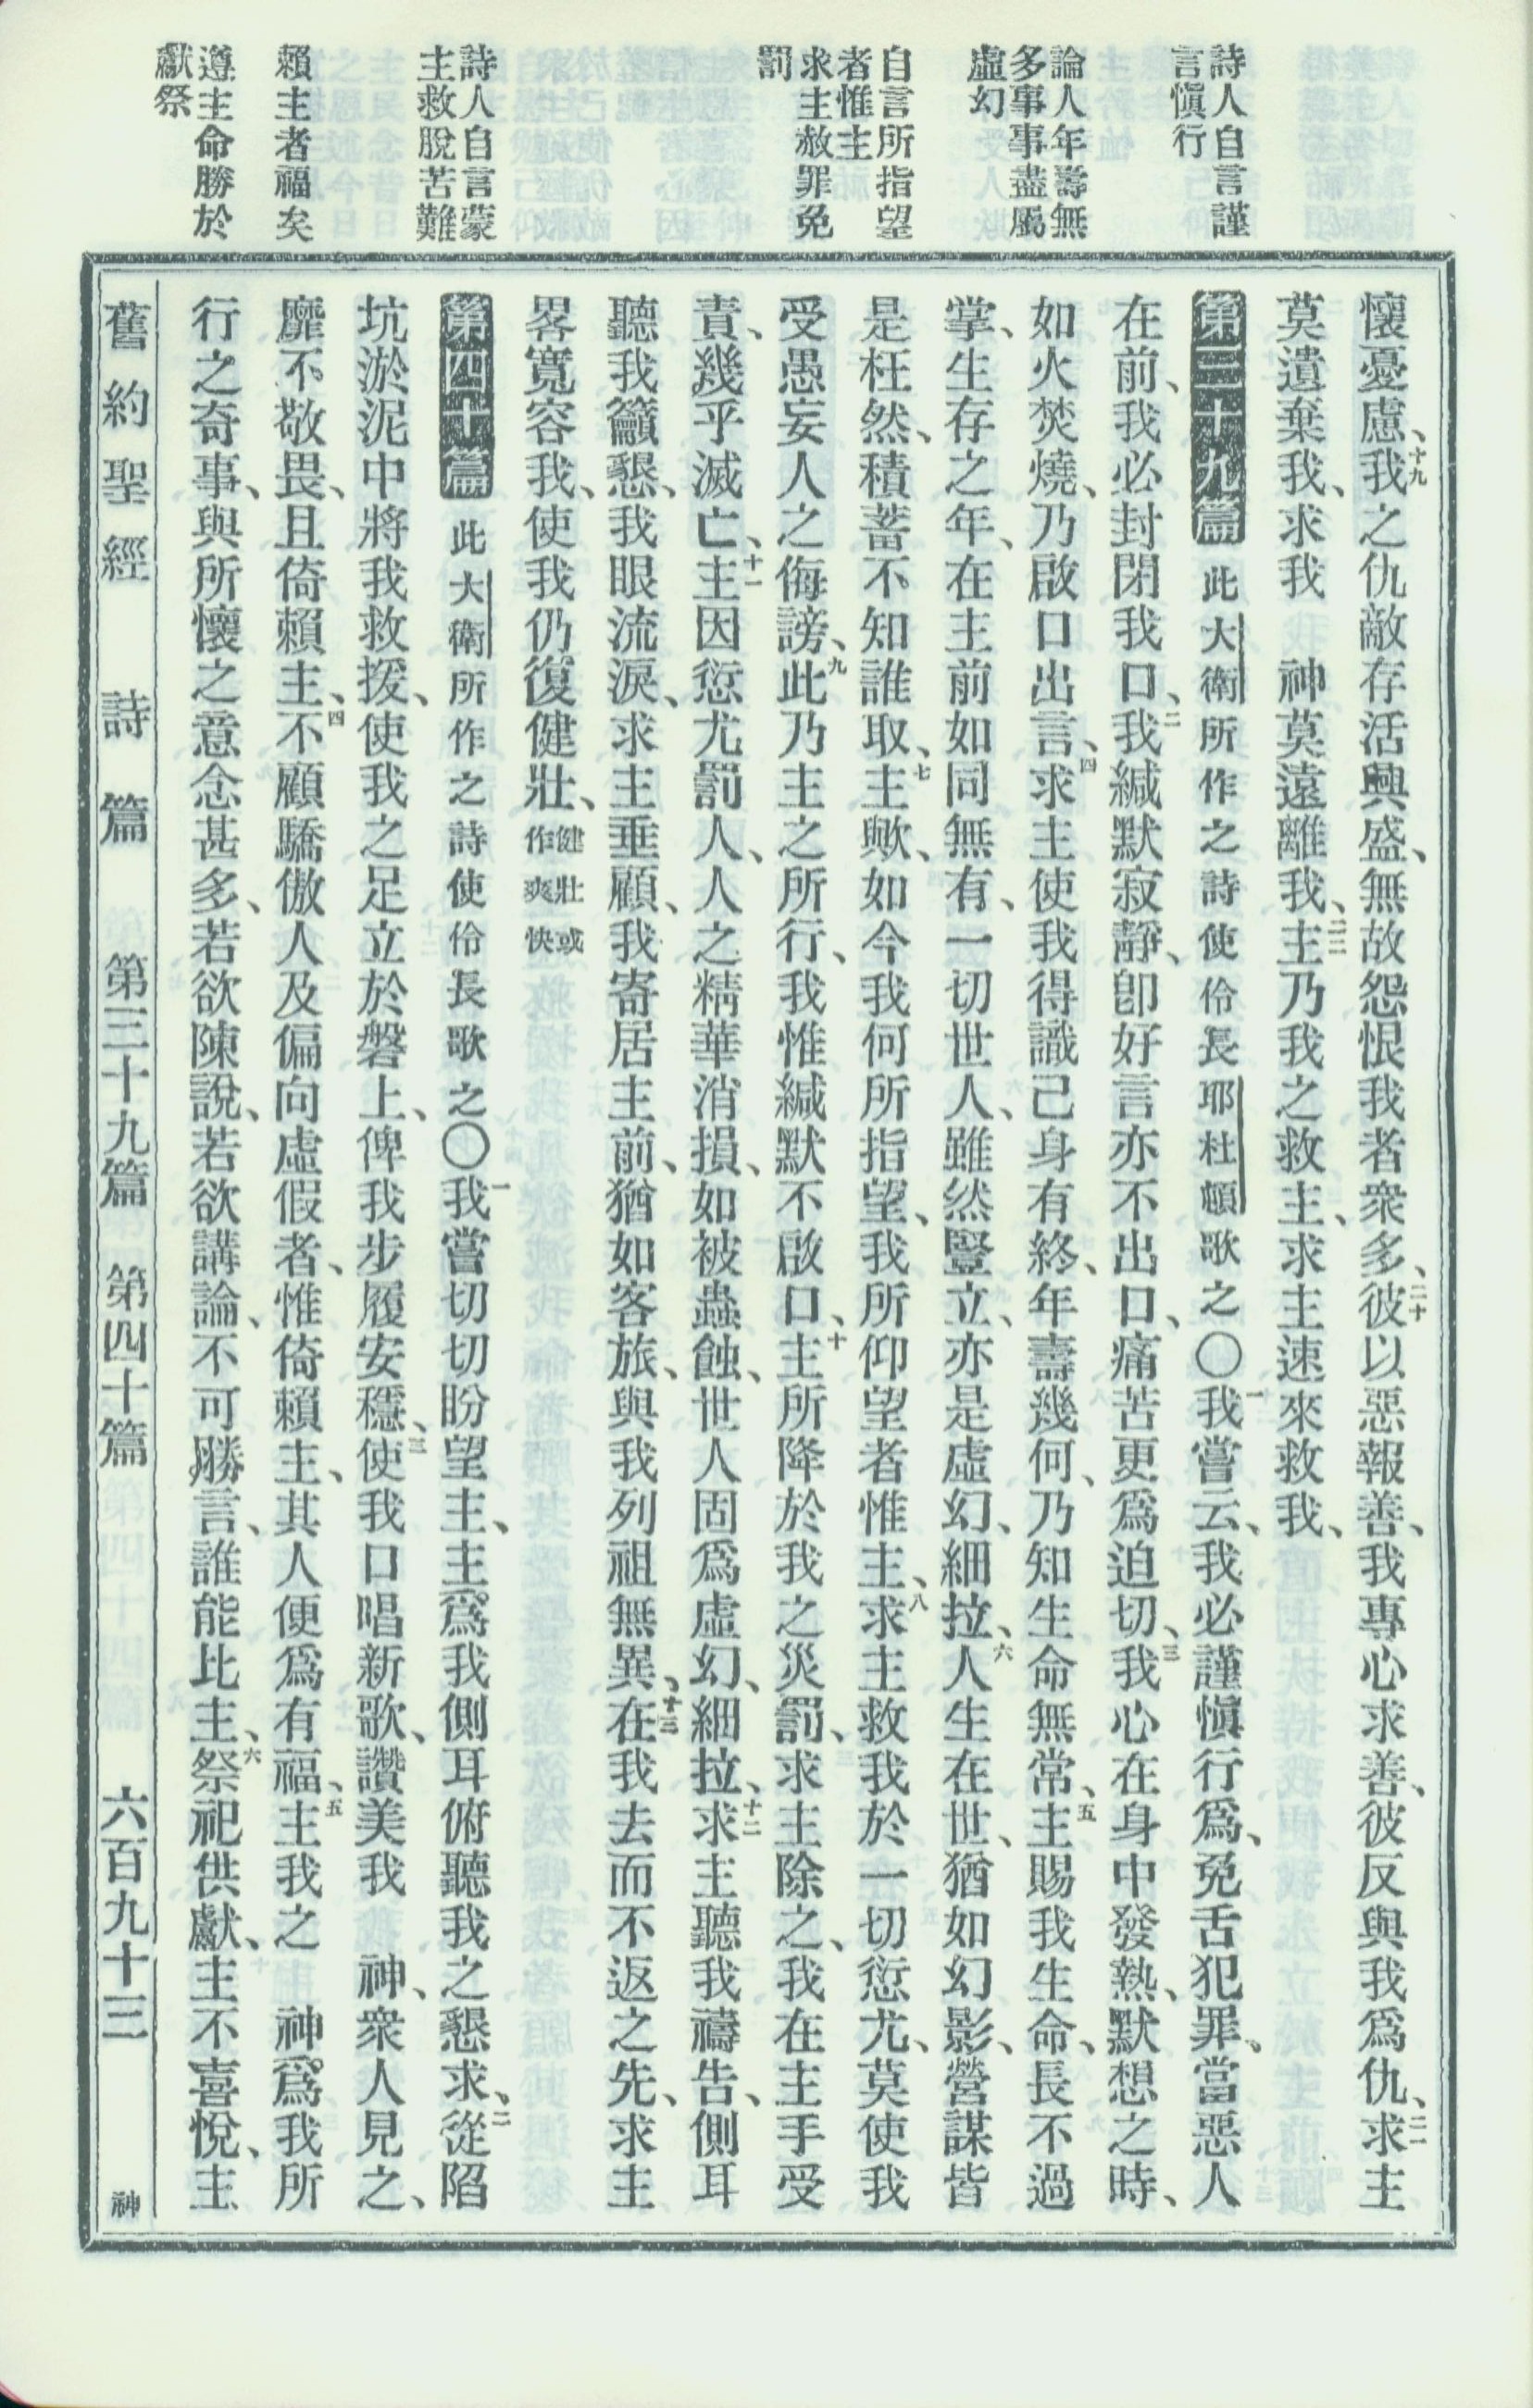 詩人自言謹
言愼行
論人年壽無
多事事盡屬
虛幻
自言所指望
者惟主
求主赦罪免
罰
詩人自言蒙
主救脫苦難
賴主者福矣
遵主命勝於
獻祭
懷憂慮、十九我之仇敵存活興盛、無故怨恨我者衆多、二十彼以惡報善、我專心求善、彼反與我爲仇、二一求主
莫遺棄我、求我　神莫遠離我、二二主乃我之救主、求主速來救我、
第三十九篇　此大衛所作之詩使伶長耶杜頓歌之〇一我嘗云、我必謹愼行爲、免舌犯罪、當惡人
在前、我必封閉我口、二我緘默寂靜、卽好言亦不出口、痛苦更爲迫切、三我心在身中發熱、默想之時、
如火焚燒、乃啟口出言、四求主使我得識己身有終、年壽幾何、乃知生命無常、五主賜我生命、長不過
掌、生存之年、在主前如同無有、一切世人、雖然豎立、亦是虛幻、細拉、六人生在世、猶如幻影、營謀皆
是枉然、積蓄不知誰取、七主歟、如今我何所指望、我所仰望者惟主、八求主救我於一切愆尤、莫使我
受愚妄人之侮謗、九此乃主之所行、我惟緘默不啟口、十主所降於我之災罰、求主除之、我在主手受
責、幾乎滅亡、十一主因愆尤罰人、人之精華消損、如被蟲蝕、世人固爲虛幻、細拉、十二求主聽我禱告、側耳
聽我籲懇、我眼流淚、求主垂顧、我寄居主前、猶如客旅、與我列祖無異、十三在我去而不返之先、求主
畧寬容我、使我仍復健壯、健壯或作爽快
第四十篇　此大衛所作之詩使伶長歌之〇一我嘗切切盼望主、主爲我側耳俯聽我之懇求、二從陷
坑淤泥中將我救援、使我之足立於磐上、俾我步履安穩、三使我口唱新歌、讚美我　神、衆人見之、
靡不敬畏、且倚賴主、四不顧驕傲人及偏向虛假者、惟倚賴主、其人便爲有福、五主我之　神爲我所
行之奇事、與所懷之意念甚多、若欲陳說、若欲講論、不可勝言、誰能比主、六祭祀供獻、主不喜悅、主
舊約聖經　詩篇　第三十九篇　第四十篇　六百九十三　神